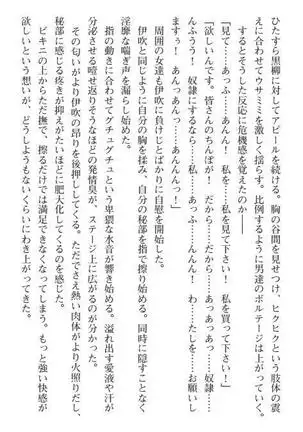 ひたすら黒柳に向けてアピールを続ける。胸の谷間を見せつけ、ヒクヒクという肢体の震
えに合わせてウサミミを激しく揺らす。比例するように男達のボルテージは上がっていく。
するとそうした反応に危機感を覚えたのか――
「見て……あっふ……んふうう！　私を……私を見て下さい！　私を買って下さい！」
「欲しいんです。皆さんのちんぽが！　だから……だから……あっあっあっ……奴隷……
んふうう！　奴隷にするなら……私……あっふ……んんんっ！　わ……わたしをお願いし
ますぅ！　あんっあんっ……あんんんっ！」
周囲の女達も伊吹に負けじとばかりに自慰を開始した。
伊吹と同じように自分の胸を揉み、自分の秘部を指で擦り始める。同時に隠すことなく
淫靡な喘ぎ声を漏らし始めた。
指の動きに合わせてグチュグチュという卑猥な水音が響き始める。溢れ出す愛液や汗が
分泌させる噎せ返りそうなほどの発情臭が、ステージ上に広がるのが分かった。
その匂いがより伊吹の昂りを後押ししてくる。ただでさえ熱い肉体がより火照りだし、
秘部に感じる疼きが抑えがたいほどに肥大化してくるのを感じた。
ビキニの上からただ撫で、擦るだけでは満足できなくなってしまう。もっと強い快感が
欲しいという想いが、どうしようもないくらいにわき上がってきた。